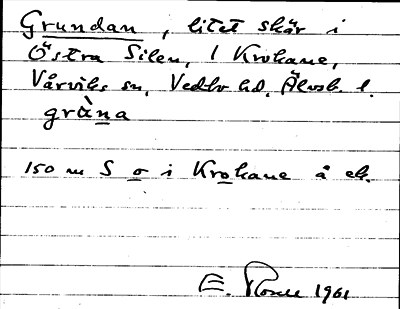 Grundan, litet skär i
Östra Silen, 1 Krokane,
Vårviks sn, Vedbo hd, Älvsb. l.
gràna
150 m S o i Krokane å ek.
E. 1961